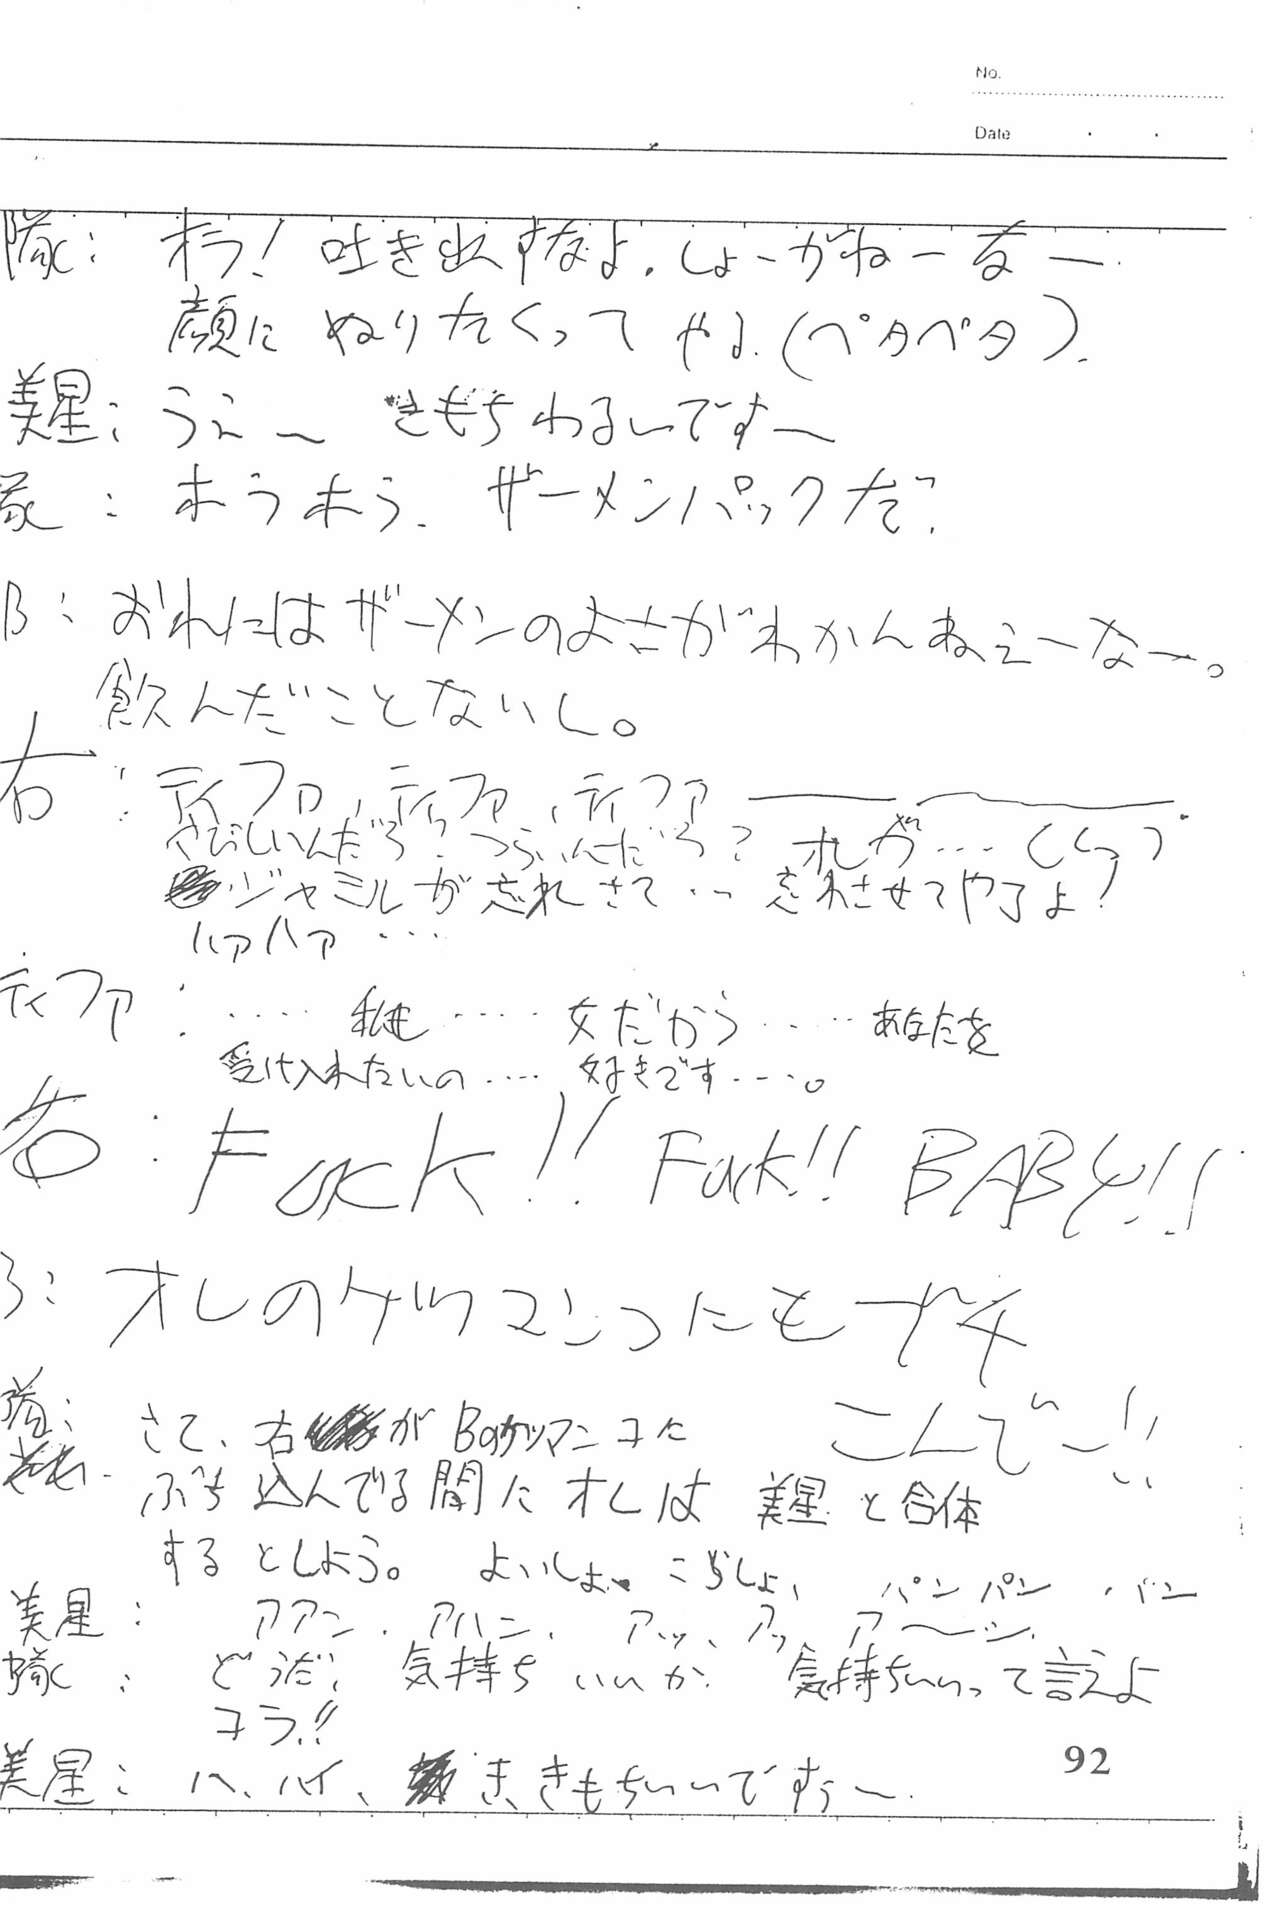 No.
Date
隊: オラ!吐き出すなよ。しょーがねーなー
顔にぬりたくってやる。(ペタペタ)
美星: うえ〜 きもちわるいです〜
隊: ホラホラ、ザーメンパックだ?
B: おれにはザーメンのよさがわかんねぇーなー。
飲んだことないし。
右: ティファ、ティファ、ティファ
さびしいんだろ?つらいんだろ?オレが…
ジャミルが忘れさせて…忘れさせてやるよ!
ハアハア…
ティファ: ……私も……女だから……あなたを
受け入れたいの…好きです…。
右: Fuck!! Fuck!! BABY!!
B: オレのケツマンコにもブチ
こんで〜!!
隊: さて、右がBのケツマンコに
ぶち込んでる間にオレは美星と合体
するとしよう。よいしょ、こらしょ、パンパンパン
美星: アアン、アハン、アッ、アッ、ア〜ン
隊: どうだ、気持ちいいか 気持ちいいって言えよ
コラ!!
美星: ハ、ハイ、き、きもちいいですぅ〜
92